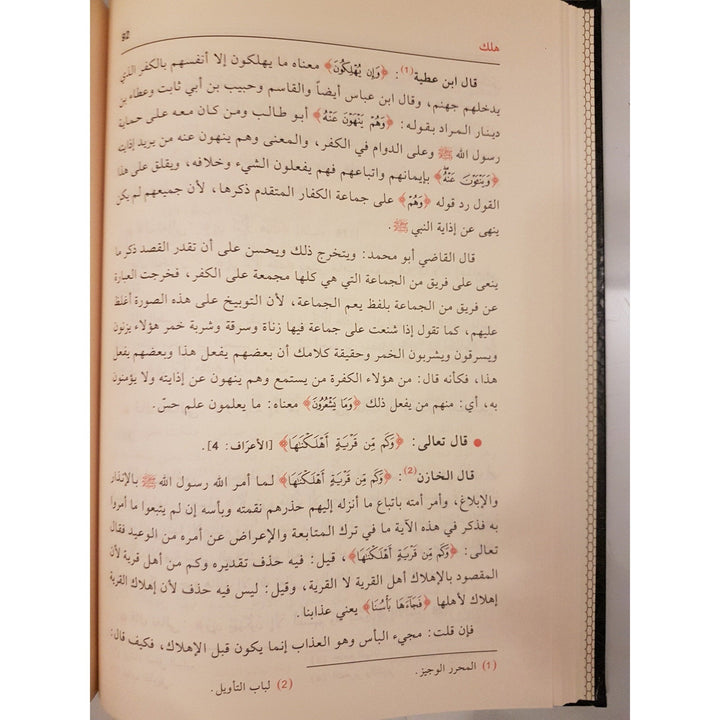 هلك
92
قال ابن عطية(1): ﴿وَإِن يُهْلِكُونَ﴾ معناه ما يهلكون إلا أنفسهم بالكفر الذي
يدخلهم جهنم، وقال ابن عباس أيضاً والقاسم وحبيب بن أبي ثابت وعطاء بن
دينار المراد بقوله: ﴿وَهُمْ يَنْهَوْنَ عَنْهُ﴾ أبو طالب ومن كان معه على حماية
رسول الله ﷺ وعلى الدوام في الكفر، والمعنى وهم ينهون عنه من يريد إذايته
﴿وَيَنْـَٔوْنَ عَنْهُ﴾ بإيمانهم واتباعهم فهم يفعلون الشيء وخلافه، ويقلق على هذا
القول رد قوله ﴿وَهُمْ﴾ على جماعة الكفار المتقدم ذكرها، لأن جميعهم لم يكن
ينهى عن إذاية النبي ﷺ.
قال القاضي أبو محمد: ويتخرج ذلك ويحسن على أن تقدر القصد ذكر ما
ينعى على فريق من الجماعة التي هي كلها مجمعة على الكفر، فخرجت العبارة
عن فريق من الجماعة بلفظ يعم الجماعة، لأن التوبيخ على هذه الصورة أغلظ
عليهم، كما تقول إذا شنعت على جماعة فيها زناة وسرقة وشربة خمر هؤلاء يزنون
ويسرقون ويشربون الخمر وحقيقة كلامك أن بعضهم يفعل هذا وبعضهم يفعل
هذا، فكأنه قال: من هؤلاء الكفرة من يستمع وهم ينهون عن إذايته ولا يؤمنون
به، أي: منهم من يفعل ذلك ﴿وَمَا يَشْعُرُونَ﴾ معناه: ما يعلمون علم حسّ.
● قال تعالى: ﴿وَكَم مِّن قَرْيَةٍ أَهْلَكْنَاهَا﴾ [الأعراف: 4].
قال الخازن(2): ﴿وَكَم مِّن قَرْيَةٍ أَهْلَكْنَاهَا﴾ لما أمر الله رسول الله ﷺ بالإنذار
والإبلاغ، وأمر أمته باتباع ما أنزله إليهم حذرهم نقمته وبأسه إن لم يتبعوا ما أمروا
به فذكر في هذه الآية ما في ترك المتابعة والإعراض عن أمره من الوعيد فقال
تعالى: ﴿وَكَم مِّن قَرْيَةٍ أَهْلَكْنَاهَا﴾، قيل: فيه حذف تقديره وكم من أهل قرية لأن
المقصود بالإهلاك أهل القرية لا القرية، وقيل: ليس فيه حذف لأن إهلاك القرية
إهلاك لأهلها ﴿فَجَآءَهَا بَأْسُنَا﴾ يعني عذابنا.
فإن قلت: مجيء البأس وهو العذاب إنما يكون قبل الإهلاك، فكيف قال:
(1) المحرر الوجيز.
(2) لباب التأويل.